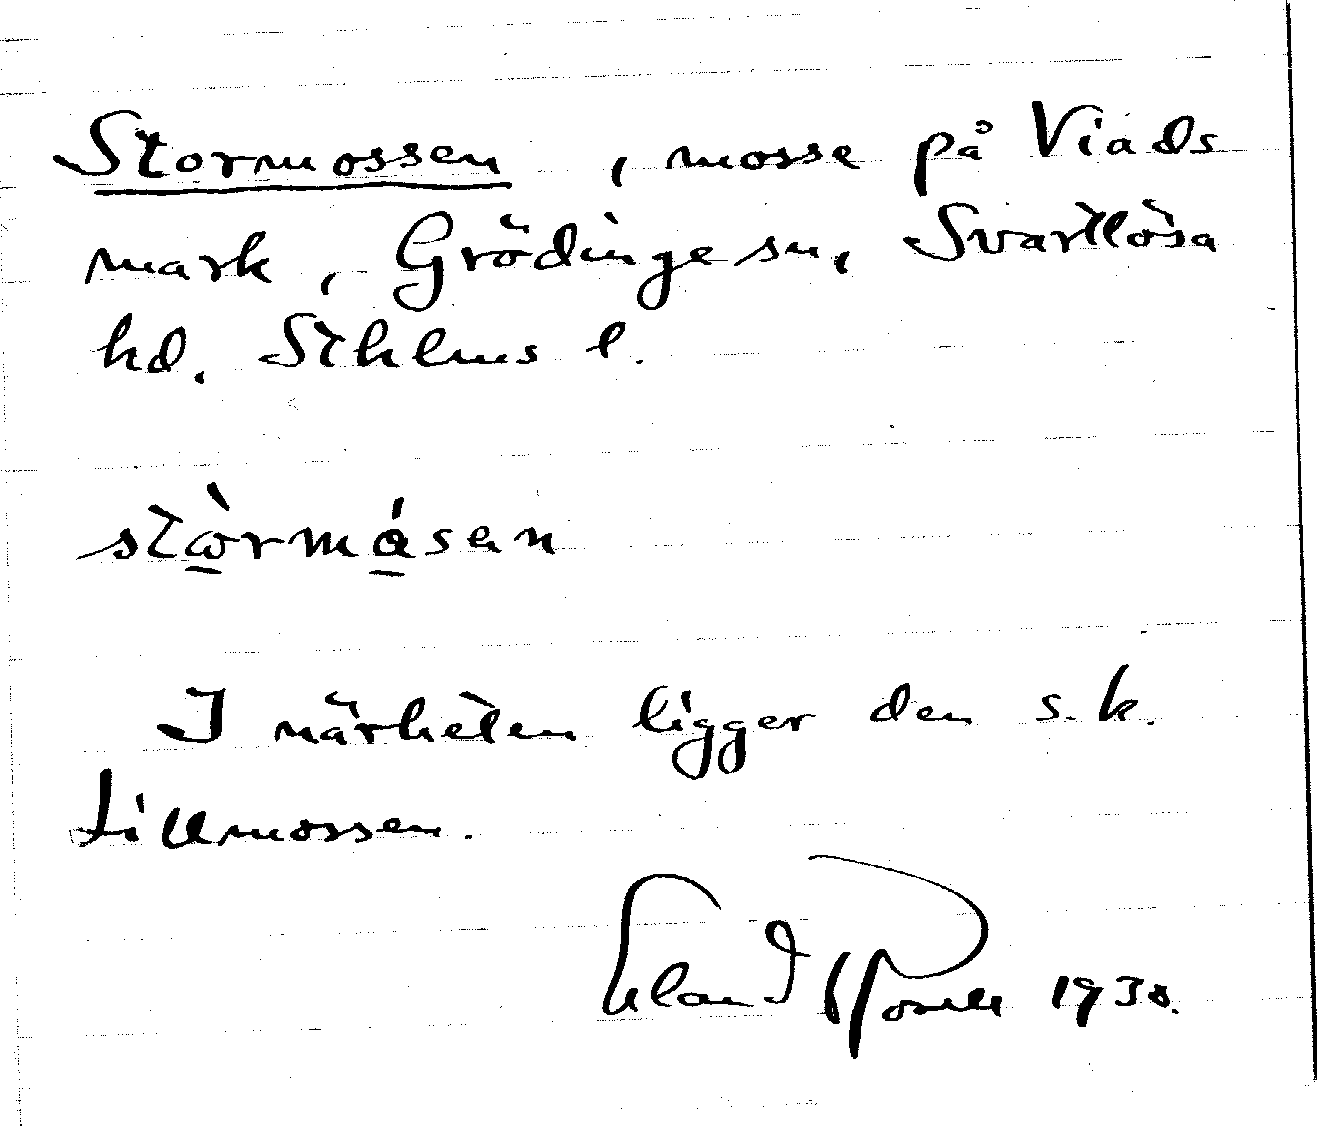 Stormossen, mosse på Viads
mark, Grödinge sn, Svartlösa
hd. Sthlms l.
stòrmåsen
I närheten ligger den s.k.
Lillmossen.
Erland Rosell 1938.